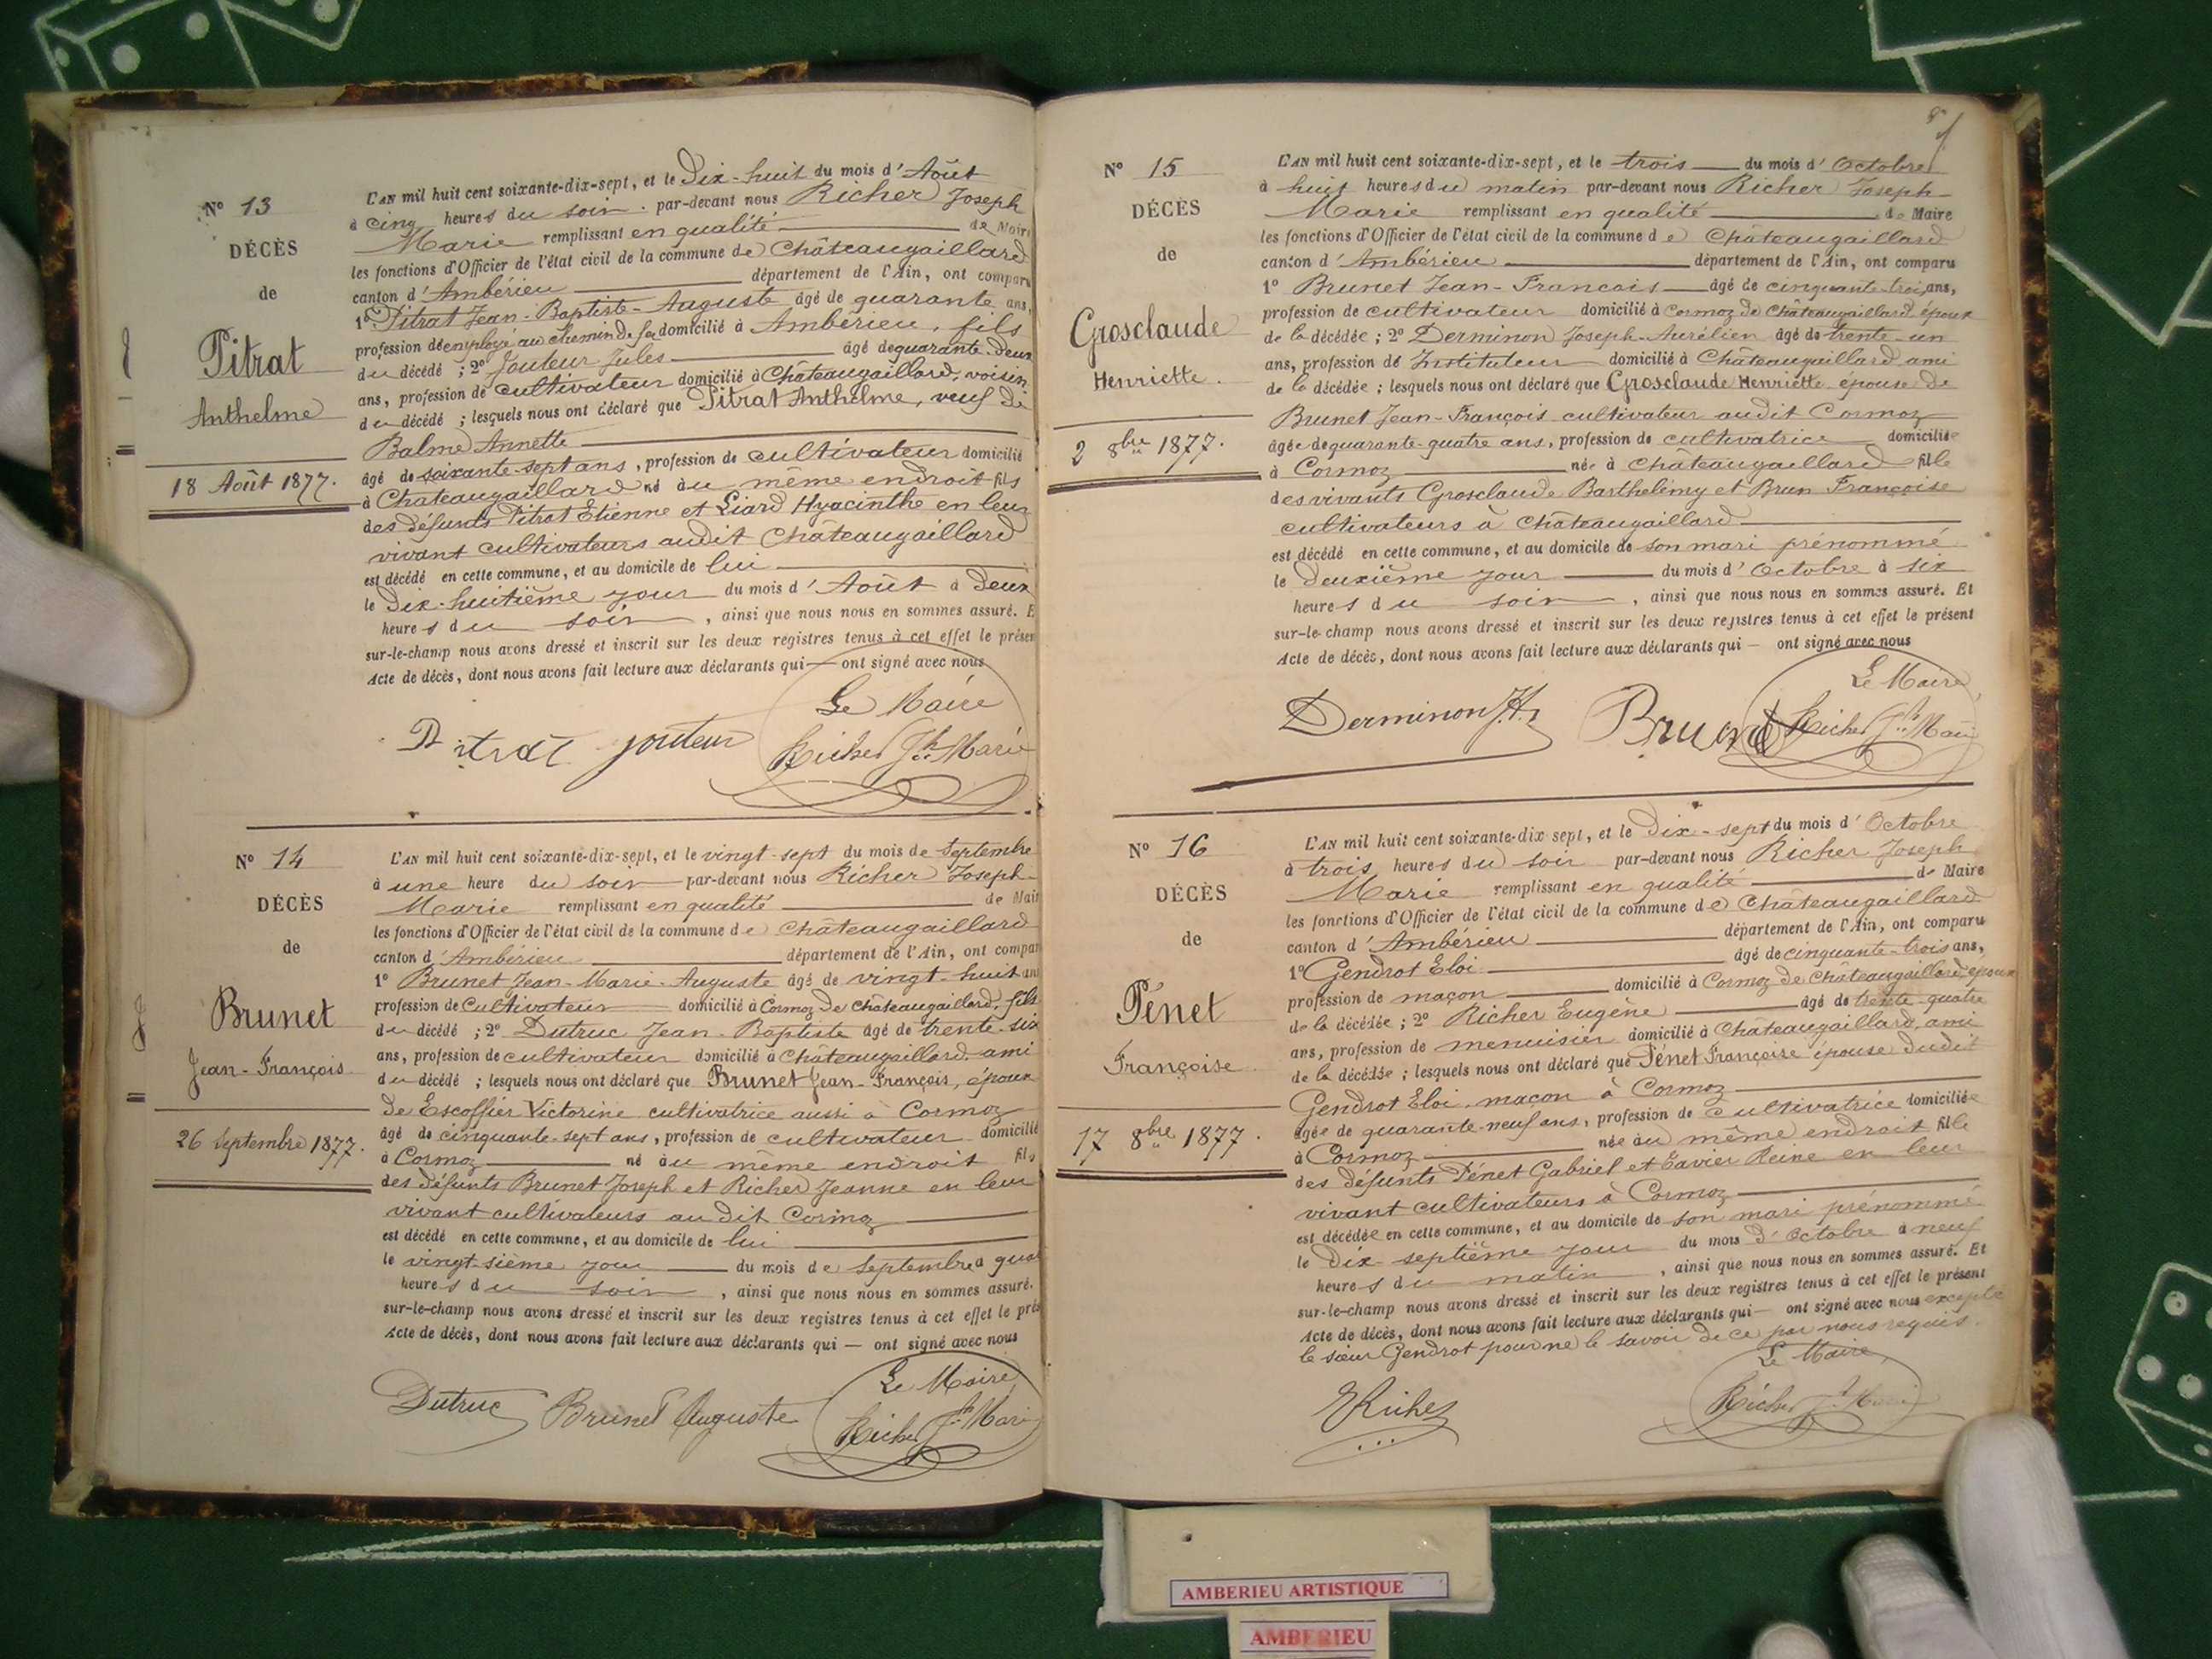 N° 13
DÉCÈS
de
Pitrat
Anthelme
18 Août 1877.
L'AN mil huit cent soixante-dix-sept, et le Dix-huit du mois d'Août
à cinq heures du soir. par-devant nous Richer Joseph
Marie remplissant en qualité de Maire
les fonctions d'Officier de l'état civil de la commune de Châteaugaillard
canton d'Ambérieu département de l'Ain, ont comparu
1° Pitrat Jean-Baptiste-Auguste âgé de quarante ans,
profession d'employé au chemin de fer domicilié à Ambérieu, fils
du décédé ; 2° Jouteur Jules âgé de quarante-deux
ans, profession de cultivateur domicilié à Châteaugaillard, voisin
du décédé ; lesquels nous ont déclaré que Pitrat Anthelme, veuf de
Balme Annette
âgé de soixante-sept ans, profession de cultivateur domicilié
à Châteaugaillard né au même endroit fils
des défunts Pitrat Etienne et Liard Hyacinthe en leur
vivant cultivateurs audit Châteaugaillard
est décédé en cette commune, et au domicile de lui
le Dix-huitième jour du mois d'Août à deux
heures du soir, ainsi que nous nous en sommes assuré. E
sur-le-champ nous avons dressé et inscrit sur les deux registres tenus à cet effet le présen
Acte de décès, dont nous avons fait lecture aux déclarants qui — ont signé avec nous
Le Maire
Pitrat jouteur Richer Jh Marie
N° 14
DÉCÈS
de
Brunet
Jean-François
26 Septembre 1877.
L'AN mil huit cent soixante-dix-sept, et le vingt-sept du mois de Septembre
à une heure du soir par-devant nous Richer Joseph-
Marie remplissant en qualité de Mair
les fonctions d'Officier de l'état civil de la commune de Châteaugaillard
canton d'Ambérieu département de l'Ain, ont compar
1° Brunet Jean-Marie-Auguste âgé de vingt-huit ans
profession de Cultivateur domicilié à Cormoz de Châteaugaillard, fils
du décédé ; 2° Dutruc Jean-Baptiste âgé de trente-six
ans, profession de cultivateur domicilié à Châteaugaillard ami
du décédé ; lesquels nous ont déclaré que Brunet Jean-François, époux
de Escoffier Victorine cultivatrice aussi à Cormoz
âgé de cinquante-sept ans, profession de cultivateur domicilié
à Cormoz né au même endroit fils
des défunts Brunet Joseph et Richer Jeanne en leur
vivant cultivateurs au dit Cormoz
est décédé en cette commune, et au domicile de lui
le vingt-sième jour du mois de Septembre à qua
heures du soir, ainsi que nous nous en sommes assuré.
sur-le-champ nous avons dressé et inscrit sur les deux registres tenus à cet effet le pré
Acte de décès, dont nous avons fait lecture aux déclarants qui — ont signé avec nous
Le Maire
Dutruc Brunet Auguste Richer Jh Mari
N° 15
DÉCÈS
de
Grosclaude
Henriette.
2 8bre 1877.
L'AN mil huit cent soixante-dix-sept, et le trois du mois d'Octobre
à huit heures du matin par-devant nous Richer Joseph-
Marie remplissant en qualité de Maire
les fonctions d'Officier de l'état civil de la commune de Châteaugaillard
canton d'Ambérieu département de l'Ain, ont comparu
1° Brunet Jean-Francois âgé de cinquante-trois ans,
profession de cultivateur domicilié à Cormoz de Châteaugaillard époux
de la décédée ; 2° Derminon Joseph-Aurélien âgé de trente-un
ans, profession de Instituteur domicilié à Châteaugaillard ami
de la décédée ; lesquels nous ont déclaré que Grosclaude Henriette épouse de
Brunet Jean-François cultivateur audit Cormoz
âgée de quarante-quatre ans, profession de cultivatrice domiciliée
à Cormoz née à Châteaugaillard fille
des vivants Grosclaude Barthelémy et Brun Françoise
cultivateurs à Châteaugaillard
est décédé en cette commune, et au domicile de son mari prénommé
le deuxième jour du mois d'Octobre à six
heures du soir, ainsi que nous nous en sommes assuré. Et
sur-le-champ nous avons dressé et inscrit sur les deux registres tenus à cet effet le présent
Acte de décès, dont nous avons fait lecture aux déclarants qui — ont signé avec nous
Le Maire,
Derminon J.A. Brunet Richer Jh Marie
N° 16
DÉCÈS
de
Pénet
Françoise.
17 8bre 1877.
L'AN mil huit cent soixante-dix-sept, et le Dix-sept du mois d'Octobre
à trois heures du soir par-devant nous Richer Joseph
Marie remplissant en qualité de Maire
les fonctions d'Officier de l'état civil de la commune de Châteaugaillard
canton d'Ambérieu département de l'Ain, ont comparu
1° Gendrot Eloi âgé de cinquante-trois ans,
profession de maçon domicilié à Cormoz de Châteaugaillard, époux
de la décédée ; 2° Richer Eugène âgé de trente-quatre
ans, profession de menuisier domicilié à Châteaugaillard, ami
de la décédée ; lesquels nous ont déclaré que Pénet Françoise épouse dudit
Gendrot Eloi, maçon à Cormoz
âgée de quarante-neuf ans, profession de cultivatrice domiciliée
à Cormoz née au même endroit fille
des défunts Pénet Gabriel et Xavier Reine en leur
vivant cultivateurs à Cormoz
est décédée en cette commune, et au domicile de son mari prénommé
le Dix-septième jour du mois d'Octobre à neuf
heures du matin, ainsi que nous nous en sommes assuré. Et
sur-le-champ nous avons dressé et inscrit sur les deux registres tenus à cet effet le présent
Acte de décès, dont nous avons fait lecture aux déclarants qui — ont signé avec nous excepté
le sieur Gendrot pour ne le savoir de ce par nous requis.
Le Maire,
ERicher Richer Jh Marie
AMBERIEU ARTISTIQUE
AMBERIEU